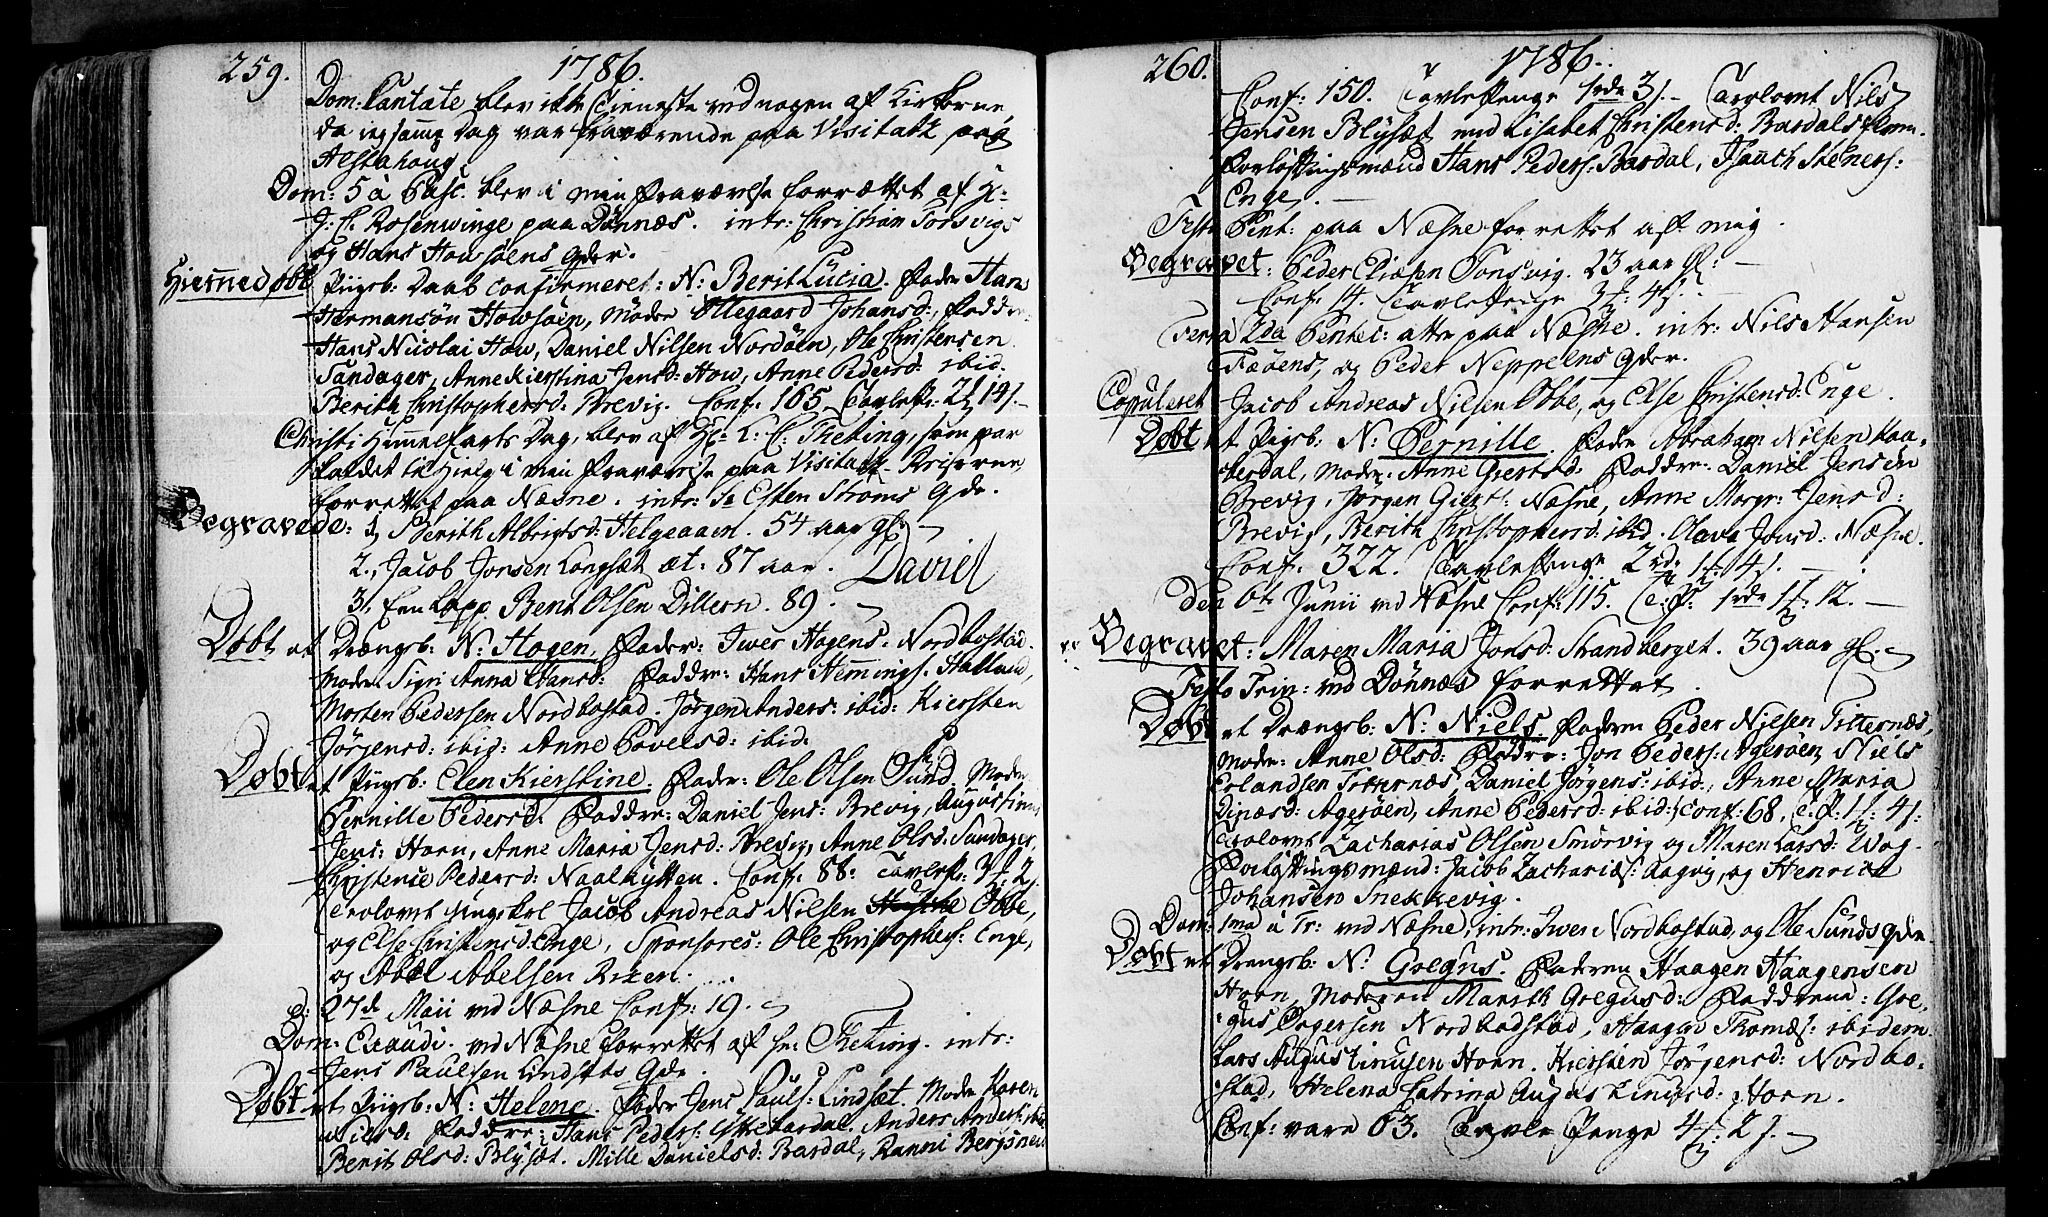 259. 1786.
Dom: Cantate blev ikke Tieneste ved nogen af Kirkerne,
da ieg samme Dag var fraværende paa Visitatz paa
Alstahoug
Dom: 5 à Pasc. blev i min fraværelse forrættet af H:
J: C. Rosenwinge paa Dønnæs. intr: Christian Torsvigs
og Hans Howsøens qder.
Hiemmedøbt Piigeb: Daab confirmeret: N: Berit Lucia. Fader Hans
Hermansøn Howsøen, Moder Ollegaard Johansd:, Faddre:
Hans Nicolai How, Daniel Nilsen Nordøen, Ole Christensen
Sandager, Anne Kierstina Jensd: How, Anne Pedersd: ibid.
Berith Christophersd: Brevig. Conf: 165. Tavlep: 2 14 s.
Christi Himmelfarts Dag, blev af Hr: L: C. Theting, som var
kaldet til Hielp i min fraværelse paa Visitatz-Reiserne
forrettet paa Næsne. intr: Sr Esten Strøms qde.
Begravede: 1, Berith Albrigtsd: Helgeaaen. 54 aar gl: –
2., Jacob Jonsen Langsæt æt: 87 aar. David
3, Een Lapp Bent Olsen Dillern. 89. –
Døbt et Drængb: N: Hagen, Fader: Iwer Hagens: Nordbostad.
Moder Sigri Anna Hansd: Faddre: Hans Hemmings: Halland,
Morten Pedersen Nordbostad. Jørgen Anders: ibid: Kiersten
Jørgensd: ibid: Anne Povelsd: ibid.
Døbt et Piigeb: Elen Kierstine. Fader: Ole Olsen Sund. Moder
Pernille Pedersd: Faddre: Daniel Jens: Brevig, Augustinus
Jens: Horn, Anne Maria Jensd: Brevig, Anne Olsd: Sandager,
Christense Pedersd: Naalhytten. Conf: 88: Tavlep: 3 2 s.
Trolovet Ungekrl Jacob Andreas Nilsen Obbe,
og Else Christensd: Enge, Sponsores: Ole Christophers: Enge,
og Abel Abelsen
d: 27de Maii ved Næsne Conf: 19. –
Dom: Exaudi. ved Næsne forrettet af Hr: Theting. intr:
Jens Paulsen Lindsets qde.
Døbt et Piigeb: N: Helene. Fader Jens Pauls: Lindsæt. Moder Karen
Nilsd: Faddre: Hans Peders: Anders Anders:
Berit Olsd: Blysæt. Mille Danielsd: Bardal, Ranni Bergsnev
260. 1786.
Conf: 150. Tavlepenge 1rdr 3 s. – Trolovet Nils
Jensen Blysæt med Lisabet Christensd: Bardals
Forløftningsmænd Hans Peders: Bardal, Steners:
Enge. –
Festo Pent: paa Næsne forrettet aff mig.
Begravet: Peder Eliæsen Tonsvig. 23 aar gl: –
Conf: 14. Tavlepenge 3: 4 s. –
Feria 2da Pentec: atter paa Næsne. intr: Nils Hansen
og Peder Neppelens qder.
Copuleret Jacob Andreas Nielsen Obbe, og Else Christensd: Enge.
Døbt et Pigeb: N: Pernille. Fader Abraham Nilsen Kaa-
Moder: Anne Giertsd: Faddre: Daniel Jensen
Brevig, Jørgen Næsne, Anne Margr: Jensd:
Brevig, Berith Christophersd: ibid. Olava Jonsd: Næsne.
Conf: 322. Tavlepenge 2rd: 1: 4 s. –
den 6te Junii ved Næsne Conf: 115. T: P: 1rdr 1: 12. –
Begravet: Maren Maria Jonsd: Strandberget. 39 aar gl. –
Festo Trin: ved Dønnæs forrettet.
Døbt et Drængb: N: Niels. Faderen Peder Nielsen Titternæs,
Moder: Anne Olsd: Faddre: Jon Peders: Agerøen, Niels
Erlandsen Titternæs, Daniel Jørgens: ibid., Anne Maria
Dinæsd: Agerøen, Anne Pedersd: ibid: Conf: 68, T: P: 1: 4 s.
Trolovet Zacharias Olsen Smørvig og Maren Larsd: Wog.
Forløftningsmænd: Jacob Zachariæs: Aagvig, og Henrich
Johansen Snekkevig.
Dom: 1ma à Tr: ved Næsne, intr: Iwer Nordbostad, og Ole Sunds qder.
Døbt et Drengb: N: Gregus. Faderen Haagen Haagensen
Horn, Moderen Marith Gregusd: Faddrene: Gre-
gus Nordbostad, Haagen Thomæs: ibidem.
Lars Augustinusen Horn. Kiersten Jørgensd: Nordbo-
stad, Helena Catrina Augustinusd: Horn.
Conf: vare 63. Tavle Penge 4: 2 s. –